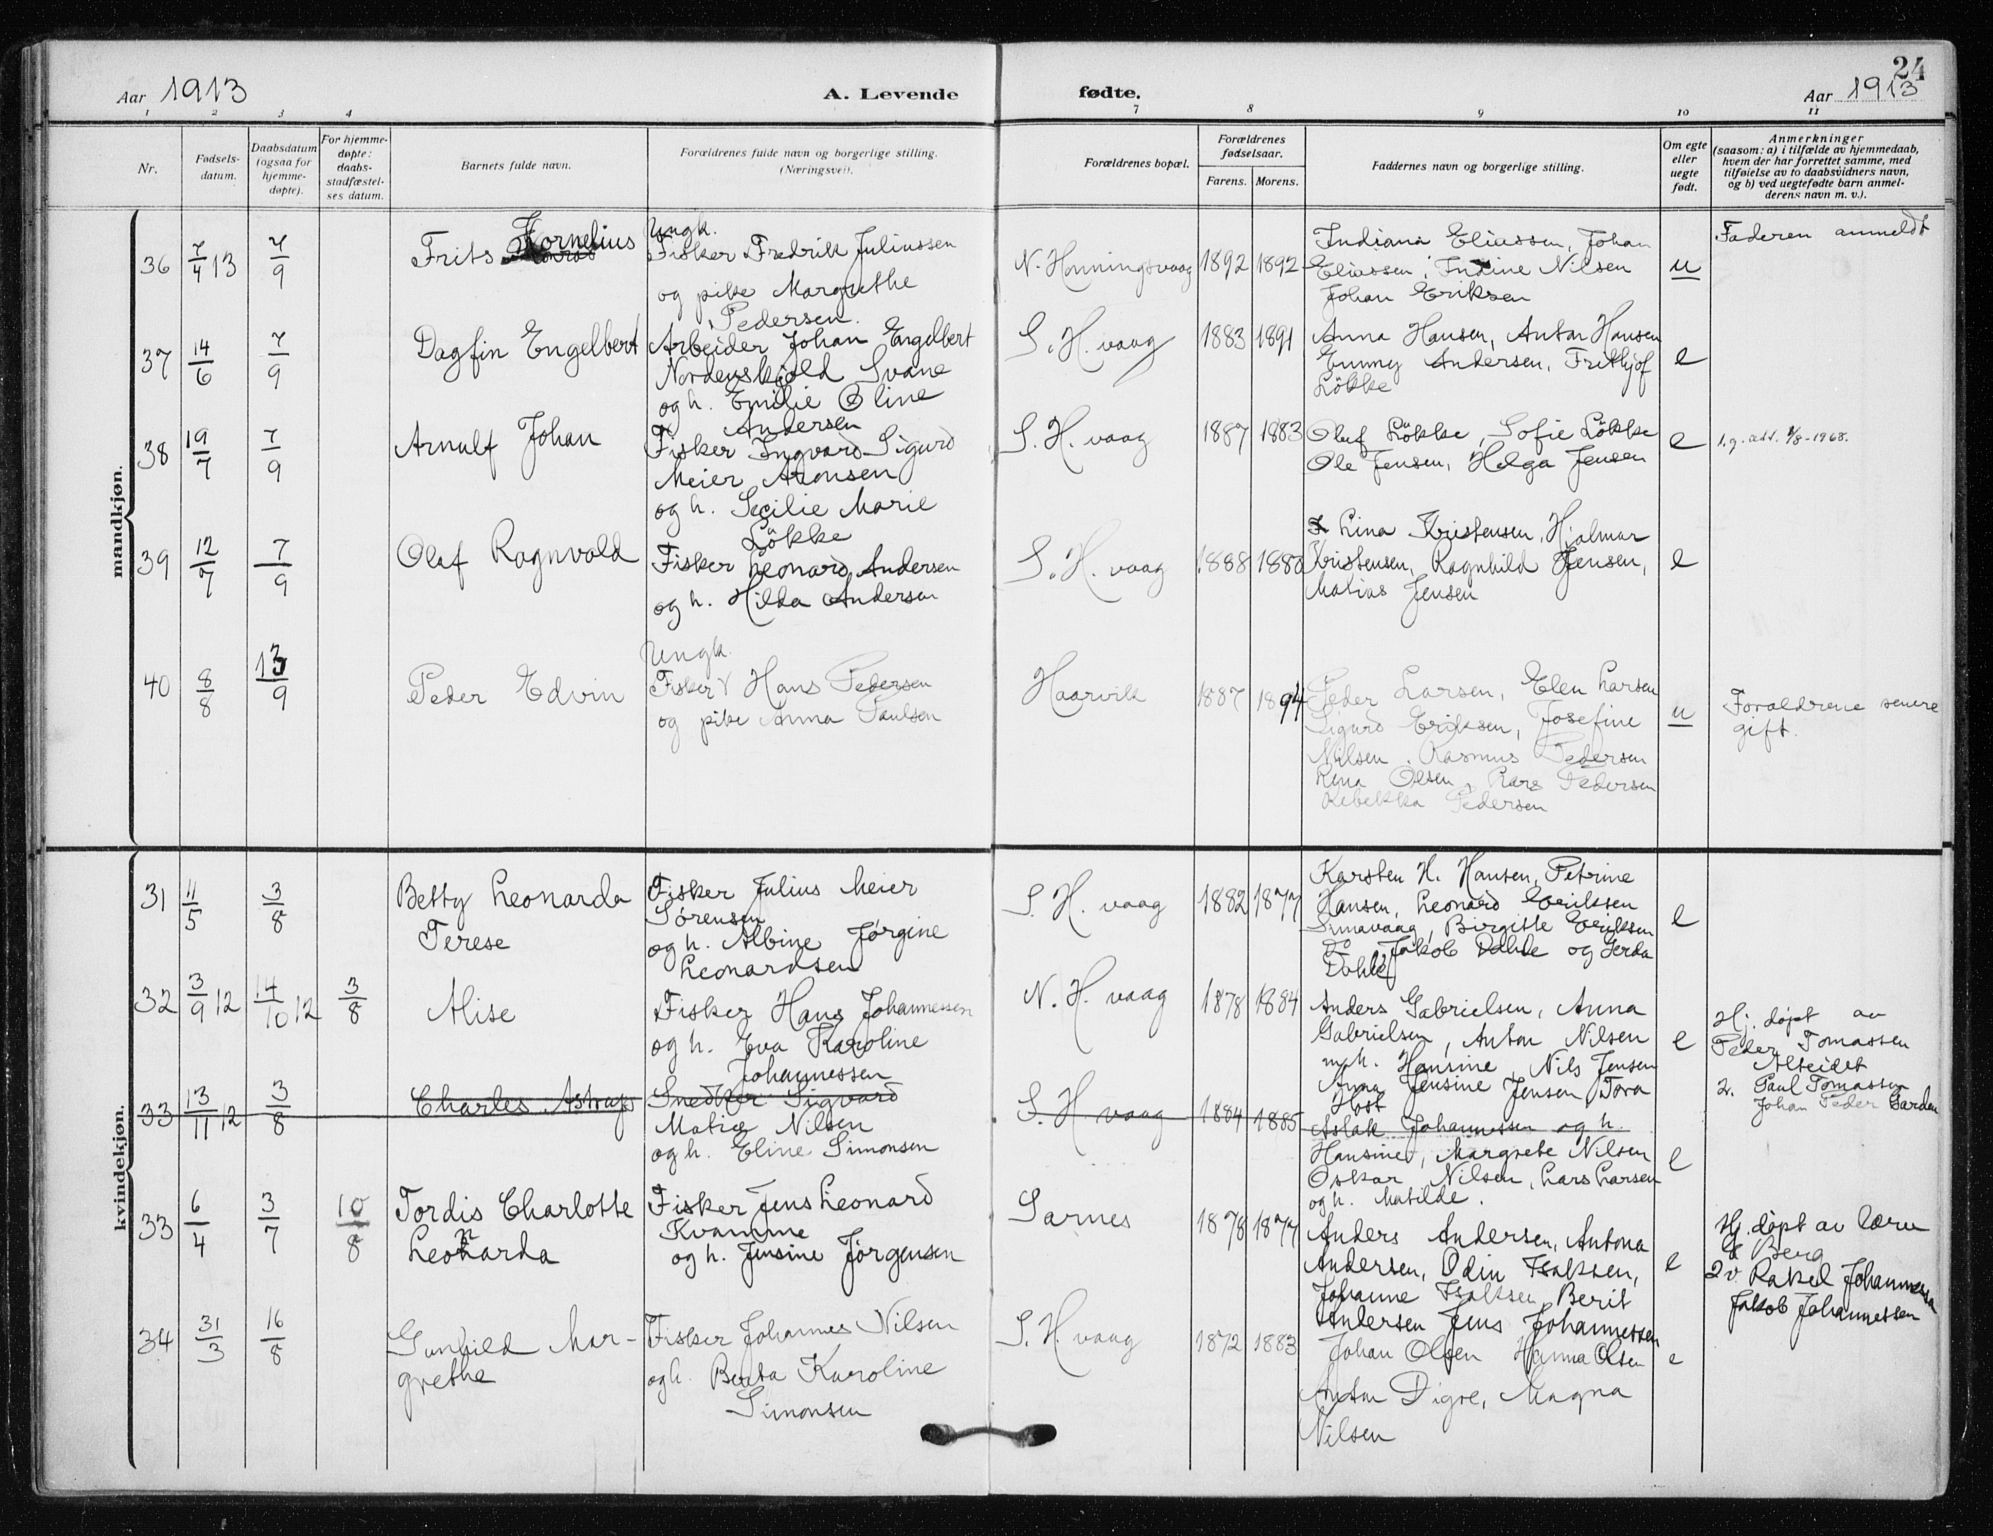 24
Aar 1913
A. Levende fødte.
Aar 1913
1 2 3 4 7 8 9 10 11
Nr.
Fødsels-
datum.
Daabsdatum
(ogsaa for
hjemme-
døpte).
For hjemme-
døpte:
daabs-
stadfæstel-
ses datum.
Barnets fulde navn.
Forældrenes fulde navn og borgerlige stilling.
(Næringsvei).
Forældrenes bopæl.
Forældrenes
fødselsaar.
Farens. Morens.
Faddernes navn og borgerlige stilling.
Om egte
eller
uegte
født.
Anmerkninger
(saasom: a) i tilfælde av hjemmedaab,
hvem der har forrettet samme, med
tilføielse av to daabsvidners navn,
og b) ved uegtefødte barn anmel-
derens navn m. v.).
mandkjøn.
36 7/4 13 7/9
Frits Kornelius
Ungk.
Fisker Fredrik Juliussen
og pike Margrethe
Pedersen.
N. Honningsvaag 1892 1892
Indiana Eliassen, Johan
Eliassen, Indine Nilsen
Johan Eriksen
u
Faderen anmeldt
37 14/6 7/9
Dagfin Engelbert
Arbeider Johan Engelbert
Nordenskjold Svane
og h. Emilie Oline
Andersen
S. H. vaag 1883 1891
Anna Hansen, Anton Hansen
Emmy Andersen, Frithjof
Løkke
e
38 19/7 7/9
Arnulf Johan
Fisker Ingvard Sigurd
Meier Aronsen
og h. Secilie Marie
Løkke
S. H. vaag 1887 1883
Olaf Løkke, Sofie Løkke
Ole Jensen, Helga Jensen
e
1.g. att. 1/8-1968.
39 12/7 7/9
Olaf Ragnvald
Fisker Leonard Andersen
og h. Hilda Andersen
S. H. vaag 1888 1880
Lina Kristensen, Hjalmar
Kristensen, Ragnhild Jensen,
Matias Jensen
e
40 8/8 13/9
Peder Edvin
Ungk.
Fisker Hans Pedersen
og pike Anna Paulsen
Haarvik 1887 1894
Peder Larsen, Elen Larsen
Sigurd Eriksen, Josefine
Nilsen, Rasmus Pedersen
Lena Olsen, Lars Pedersen
Rebekka Pedersen
u
Foraldrene senere
gift.
kvindekjøn.
31 11/5 3/8
Betty Leonarda
Terese
Fisker Julius Meier
Sørensen
og h. Albine Jørgine
Leonardsen
S. H. vaag 1882 1877
Karsten H. Hansen, Petrine
Hansen, Leonard Eriksen
Simavaag, Birgitte Eriksen
Jakob Dahle og Gerda
Dahle
e
32 3/9 12 14/10 12 3/8
Alise
Fisker Hans Johannessen
og h. Eva Karoline
Johannessen
N. H. vaag 1878 1884
Anders Gabrielsen, Anna
Gabrielsen, Anton Nilsen
m. h. Hansine, Nils Jensen
Anna Jensine Jensen Tora
Høst
e
Hj. døpt av
Peder Tomassen
Alteidet
2. Paul Tomassen
Johan Peder Garden
33 13/11 12 3/8
Charles Astrup
Snedker Sigvard
Matias Nilsen
og h. Eline Simonsen
S. H. vaag 1884 1885
Aslak Johannessen og h.
Hansine, Margrete Nilsen
Oskar Nilsen, Lars Larsen
og h. Matilde.
e
33 6/4 3/7 10/8
Tordis Charlotte
Leonarda
Fisker Jens Leonard
Kvamme
og h. Jensine Jørgensen
Sarnes 1878 1877
Anders Andersen, Antona
Andersen, Odin Isaksen,
Johanne Isaksen, Berit
Andersen Jens Johannessen
e
Hj. døpt av lærer
Berg
2 v Rakel Johannessen
Jakob Johannessen
34 31/3 16/8
Gunhild Mar-
grethe
Fisker Johannes Nilsen
og h. Berta Karoline
Simonsen
S. H. vaag 1872 1883
Johan Olsen Hanna Olsen
Anton Digre, Magna
Nilsen
e